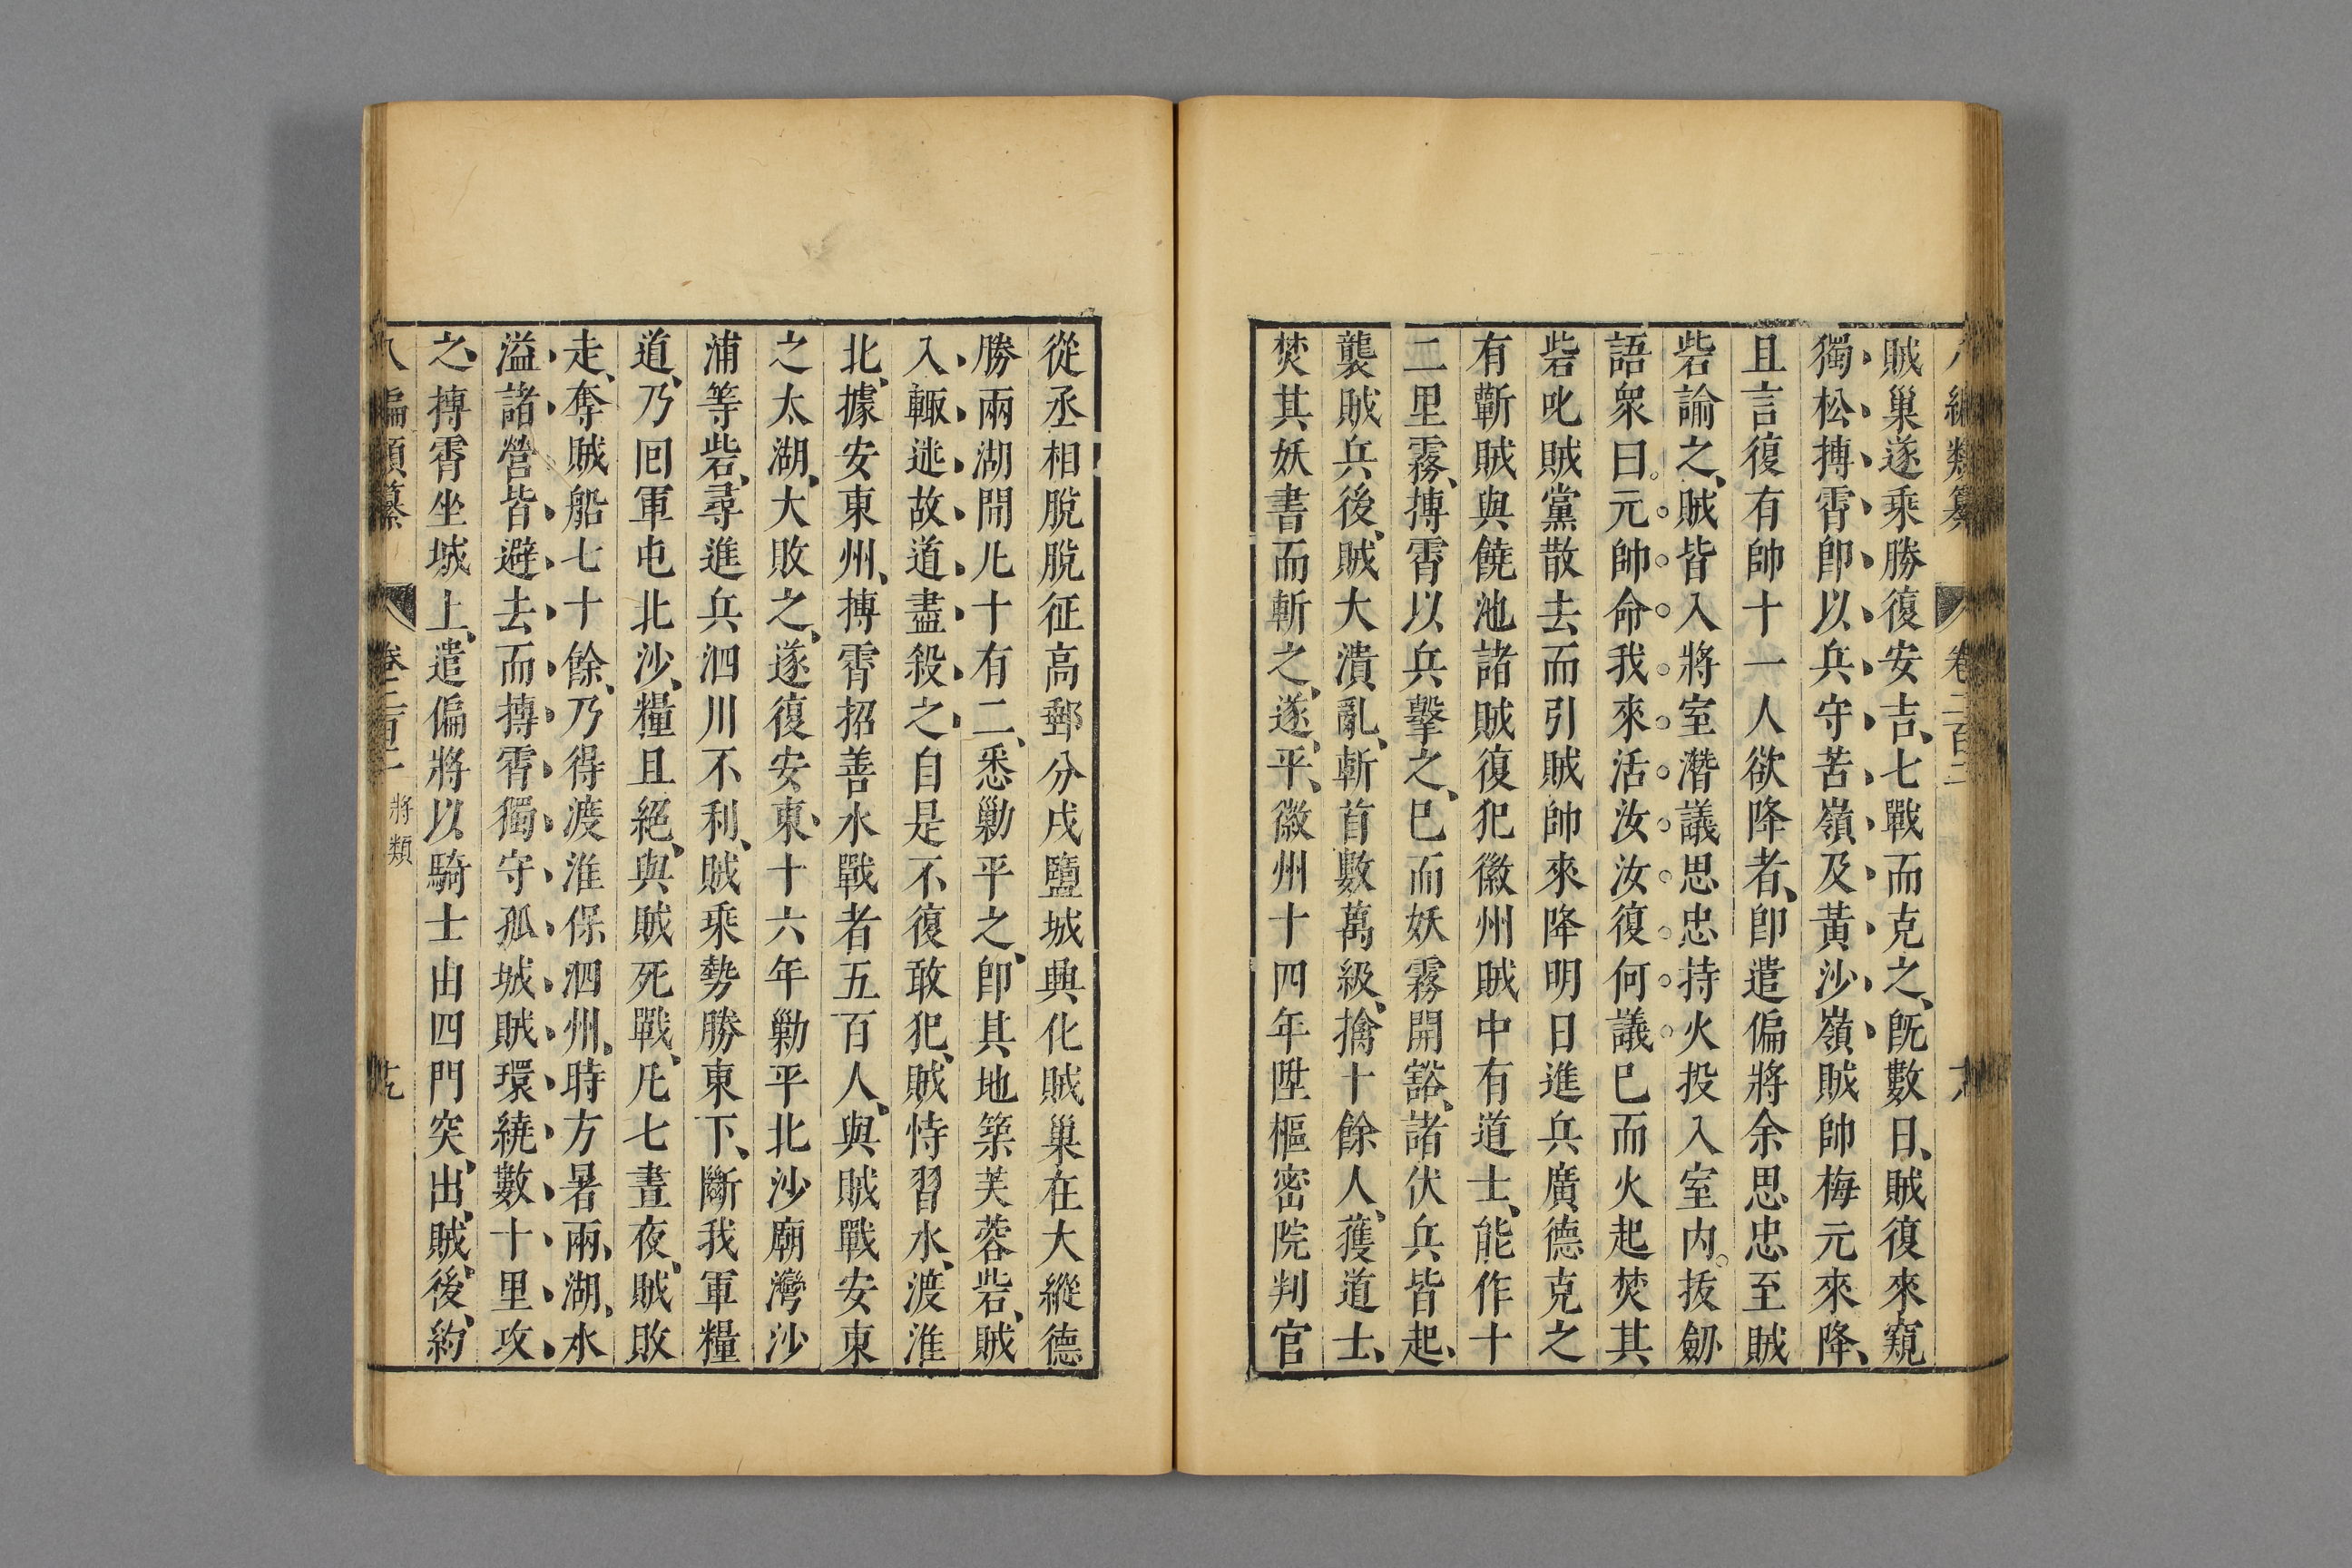 八編類纂 卷二百三
賊巢遂乘勝復安吉七戰而克之旣數日賊復來窺
獨松摶霄卽以兵守苦嶺及黃沙嶺賊帥梅元來降
且言復有帥十一人欲降者卽遣偏將余思忠至賊
砦諭之賊皆入將室潛議思忠持火投入室內拔劒
語衆曰元帥命我來活汝汝復何議巳而火起焚其
砦叱賊黨散去而引賊帥來降明日進兵廣德克之
有蘄賊與饒池諸賊復犯徽州賊中有道士能作十
二里霧摶霄以兵擊之巳而妖霧開豁諸伏兵皆起
襲賊兵後賊大潰亂斬首數萬級擒十餘人獲道士
焚其妖書而斬之遂平徽州十四年陞樞密院判官
從丞相脫脫征高郵分戍鹽城興化賊巢在大縱德
勝兩湖間凡十有二悉勦平之卽其地築芙蓉砦賊
入輒迷故道盡殺之自是不復敢犯賊恃習水渡淮
北據安東州摶霄招善水戰者五百人與賊戰安東
之太湖大敗之遂復安東十六年勦平北沙廟灣沙
浦等砦尋進兵泗川不利賊乘勢勝東下斷我軍糧
道乃囘軍屯北沙糧且絕與賊死戰凡七晝夜賊敗
走奪賊船七十餘乃得渡淮保泗州時方暑雨湖水
溢諸營皆避去而摶霄獨守孤城賊環繞數十里攻
之摶霄坐城上遣偏將以騎士由四門突出賊後約
八編類纂 卷二百三 將類 十九